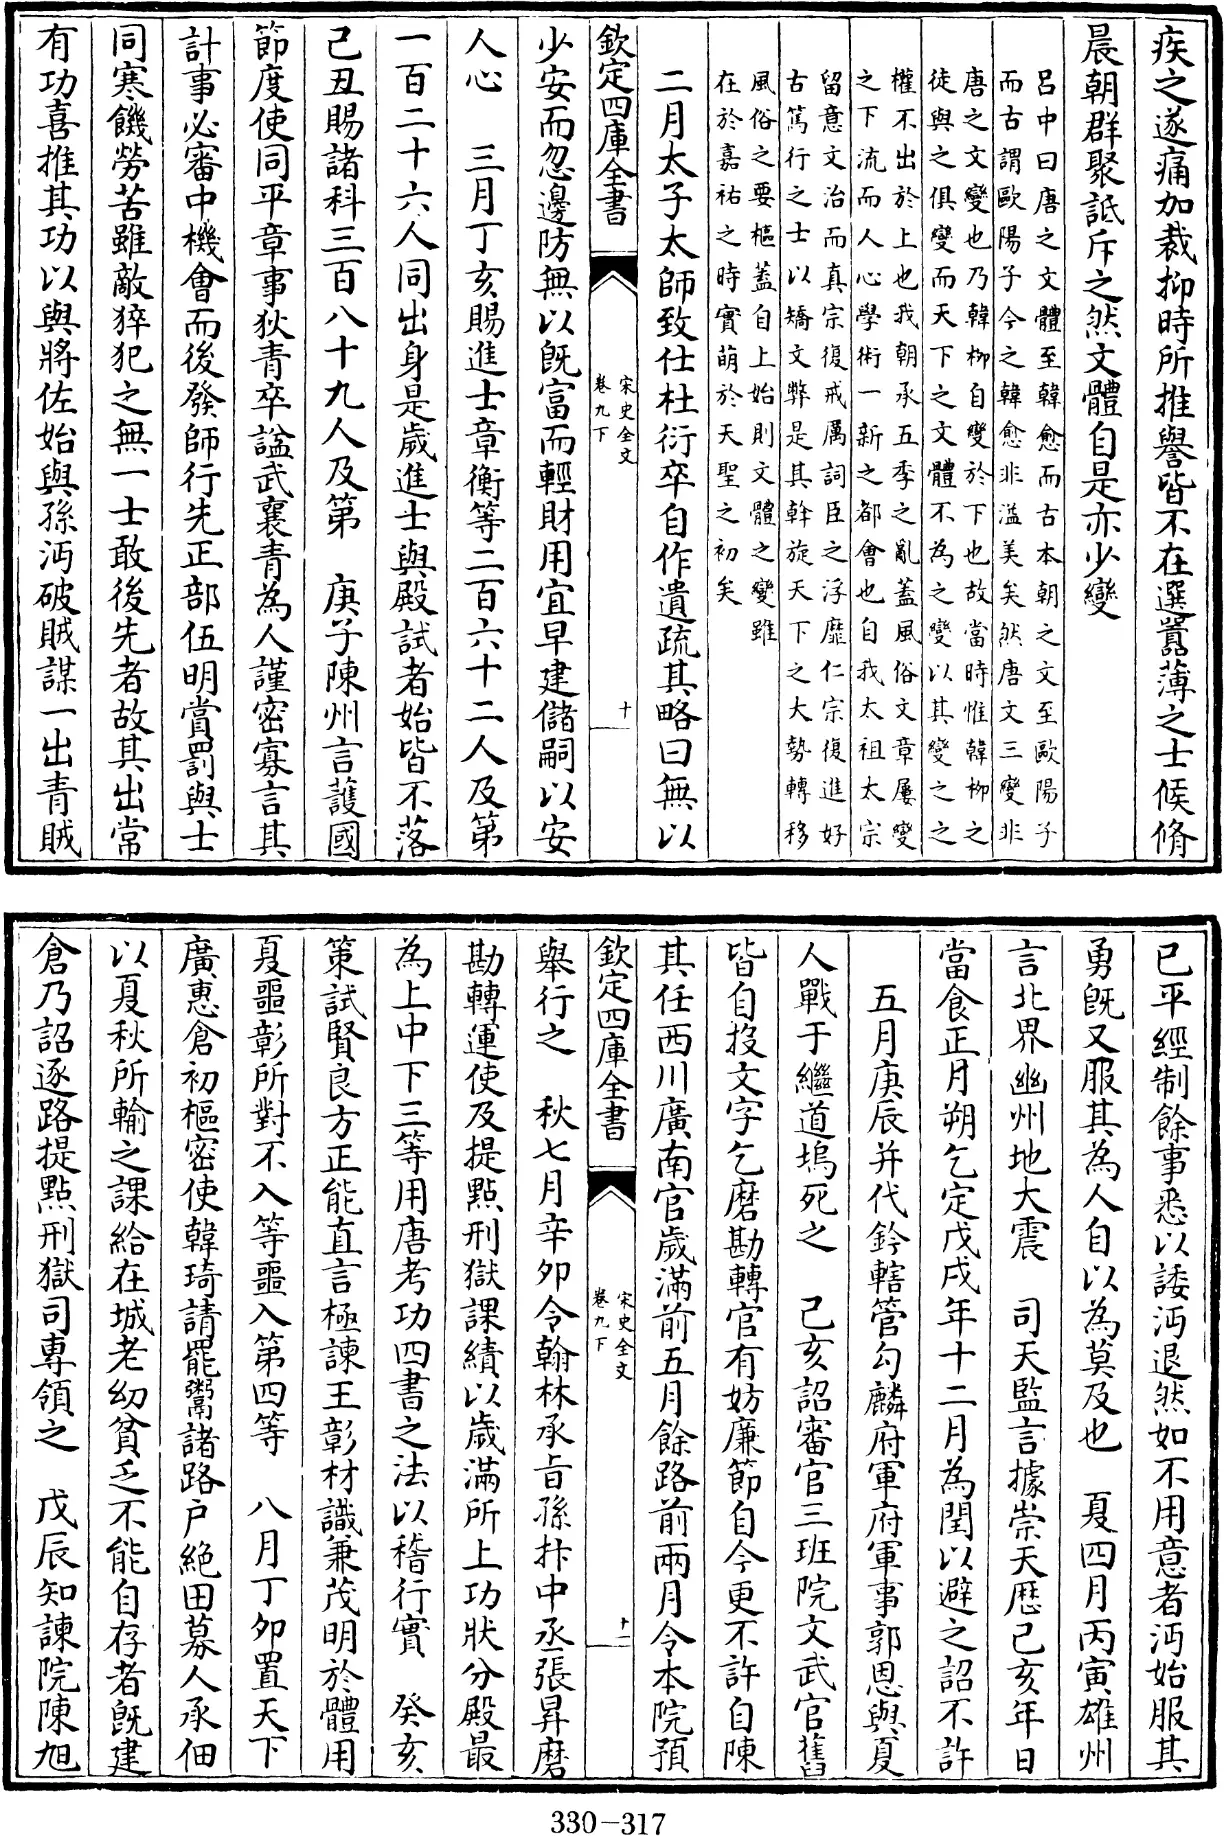 疾之遂痛加裁抑時所推譽皆不在選囂薄之士候脩
晨朝群聚詆斥之然文體自是亦少變
呂中曰唐之文體至韓愈而古本朝之文至歐陽子
而古謂歐陽子今之韓愈非溢美矣然唐文三變非
唐之文變也乃韓柳自變於下也故當時惟韓柳之
徒與之俱變而天下之文體不為之變以其變之之
權不出於上也我朝承五季之亂蓋風俗文章屢變
之下流而人心學術一新之都會也自我太祖太宗
留意文治而真宗復戒厲詞臣之浮靡仁宗復進好
古篤行之士以矯文弊是其斡旋天下之大勢轉移
風俗之要樞蓋自上始則文體之變雖
在於嘉祐之時實萌於天聖之初矣
二月太子太師致仕杜衍卒自作遺疏其略曰無以
欽定四庫全書
宋史全文
卷九下
十
少安而忽邊防無以既富而輕財用宜早建儲嗣以安
人心 三月丁亥賜進士章衡等二百六十二人及第
一百二十六人同出身是歲進士與殿試者始皆不落
己丑賜諸科三百八十九人及第 庚子陳州言護國
節度使同平章事狄青卒諡武襄青為人謹密寡言其
計事必審中機會而後發師行先正部伍明賞罰與士
同寒饑勞苦雖敵猝犯之無一士敢後先者故其出常
有功喜推其功以與將佐始與孫沔破賊謀一出青賊
已平經制餘事悉以諉沔退然如不用意者沔始服其
勇既又服其為人自以為莫及也 夏四月丙寅雄州
言北界幽州地大震 司天監言據崇天厯己亥年日
當食正月朔乞定戊戌年十二月為閏以避之詔不許
五月庚辰并代鈐轄管勾麟府軍府軍事郭恩與夏
人戰于繼道塢死之 己亥詔審官三班院文武官舊
皆自投文字乞磨勘轉官有妨廉節自今更不許自陳
其任西川廣南官歲滿前五月餘路前兩月令本院預
欽定四庫全書
宋史全文
卷九下
十一
舉行之 秋七月辛卯令翰林承旨孫抃中丞張昇磨
勘轉運使及提點刑獄課績以歲滿所上功狀分殿最
為上中下三等用唐考功四書之法以稽行實 癸亥
策試賢良方正能直言極諫王彰材識兼茂明於體用
夏噩彰所對不入等噩入第四等 八月丁卯置天下
廣惠倉初樞密使韓琦請罷鬻諸路户絶田募人承佃
以夏秋所輸之課給在城老幼貧乏不能自存者既建
倉乃詔逐路提點刑獄司專領之 戊辰知諫院陳旭
330-317